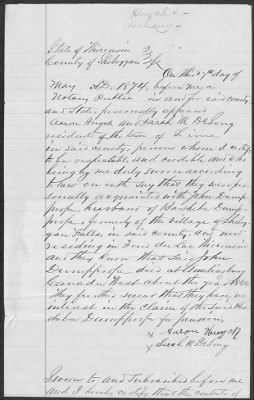 State of Wisconsin
County of Sheboygan
On this 27th day of
May A.D. 1874, before me a
Notary Public in and for said county
and State, personally appeared
Aaron and Sarah M. DeLong
residents of the town of Lima
in said county, persons whom I certify
to be respectable and credible and who
being by me duly sworn according
to law on oath say that they were per-
sonally acquainted with John Dumpprope
husband of Dump-
prope, formerly of the Village of Sheboy-
gan Falls, in said county, and now
residing in Fond du Lac Wisconsin
and they know that said John
Dumpprope died at
Canada West about the year 1860
They further swear that they have no
interest in the claim of
Dumpprope for pension.
Aaron
Sarah M DeLong
Sworn to and subscribed before me
and I hereby certify that the contents of